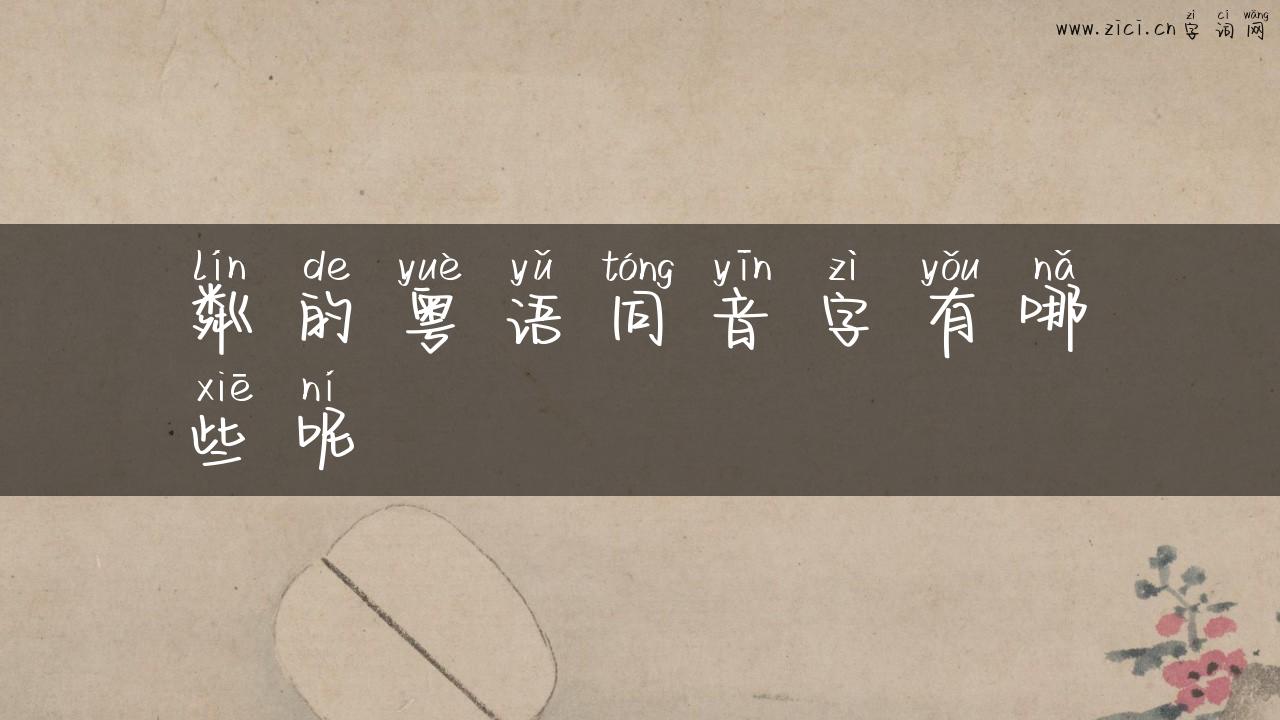 zì cí wǎng
www.zici.cn 字词网
lín de yuè yǔ tóng yīn zì yǒu nǎ
粼的粤语同音字有哪
xiē ní
些呢